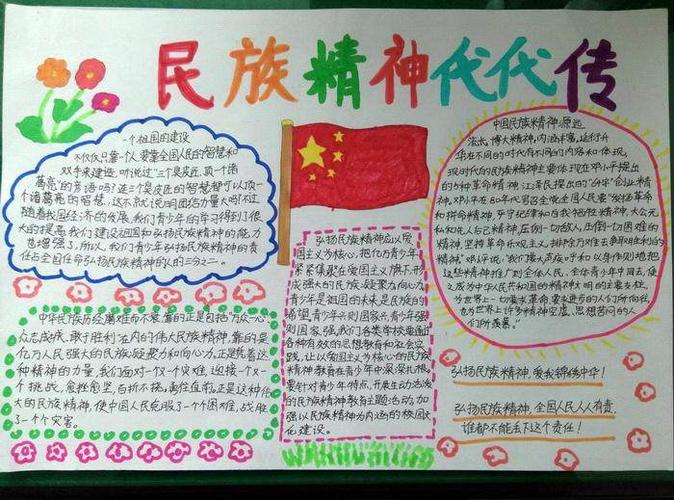 民族精神代代传
一个祖国的建设
不仅仅只靠一个人,要靠全国人民的智慧和
双手来建造,听说过"三个臭皮匠,顶一个诸
葛亮"的旁语吗?连三个臭皮匠的智慧都可以顶一
个诸葛亮的智慧,这不就说明团结力量大吗?不过
随着我国经济的发展,我们青少年的学习得到了很
大的提高,我们建设祖国和弘扬民族精神的能力
也增强了,所以,我们青少年弘扬民族精神的责
任占全国任命弘扬民族精神的人的三分之一。
中华民族历经磨难而不衰,靠的正是包括"万众一心
众志成城,敢于胜利"在内的伟大民族精神,靠的是
亿万人民强大的民族凝聚力和向心力,正是凭着这
种精神的力量,我们面对一次个灾难,迎接一次一
个挑战,愈挫愈坚,百折不挠,勇往直前,正是这种伟
大的民族精神,使中国人民克服了一个个困难,战胜
了一个个灾害。
弘扬民族精神应以爱
国主义为核心,把亿万青少年
紧紧集聚在爱国主义旗下,形
成强大的民族凝聚力向心力
青少年是祖国的未来是民族的
希望,青少年兴则国家兴,青少年强
则国家强,我们各类学校要通过
各种有效的思想教育和社会实
践,让以爱国主义为核心的民族
精神教育在青少年中深深扎根,
要针对青少年特点,开展生动活泼
的民族精神教育主题活动,加
强以民族精神为内涵的校园文
化建设。
中国民族精神,源远
流长,博大精深,内涵丰富,运行升
华在不同的时代有不同的内容和体现,
现时代的民族精神主要体现在邓小平提出
的5种革命精神,江泽民提出的"64字"创业精
神,邓小平在80年代号召全党全国人民要"发扬革命
和拼命精神,严守纪律和自我牺牲精神,大公无
私和先人后己精神,压倒一切敌人,压倒一切困难的
精神,坚持革命乐观主义,排除万难去争取胜利的
精神"邓评说:"我们要大声疾呼和以身作则地把
这些精神推广到全体人民,全体青少年中间去,使
之成为中华人民共和国的精神文明的主要支柱,
为世界上一切要求革命,要求进步的人们所向往,
也为世界上许多精神空虚,思想苦闷的人
们所羡慕。"
弘扬民族精神,爱我锦绣中华!
弘扬民族精神,全国人民人人有责,
谁都不能丢下这个责任!